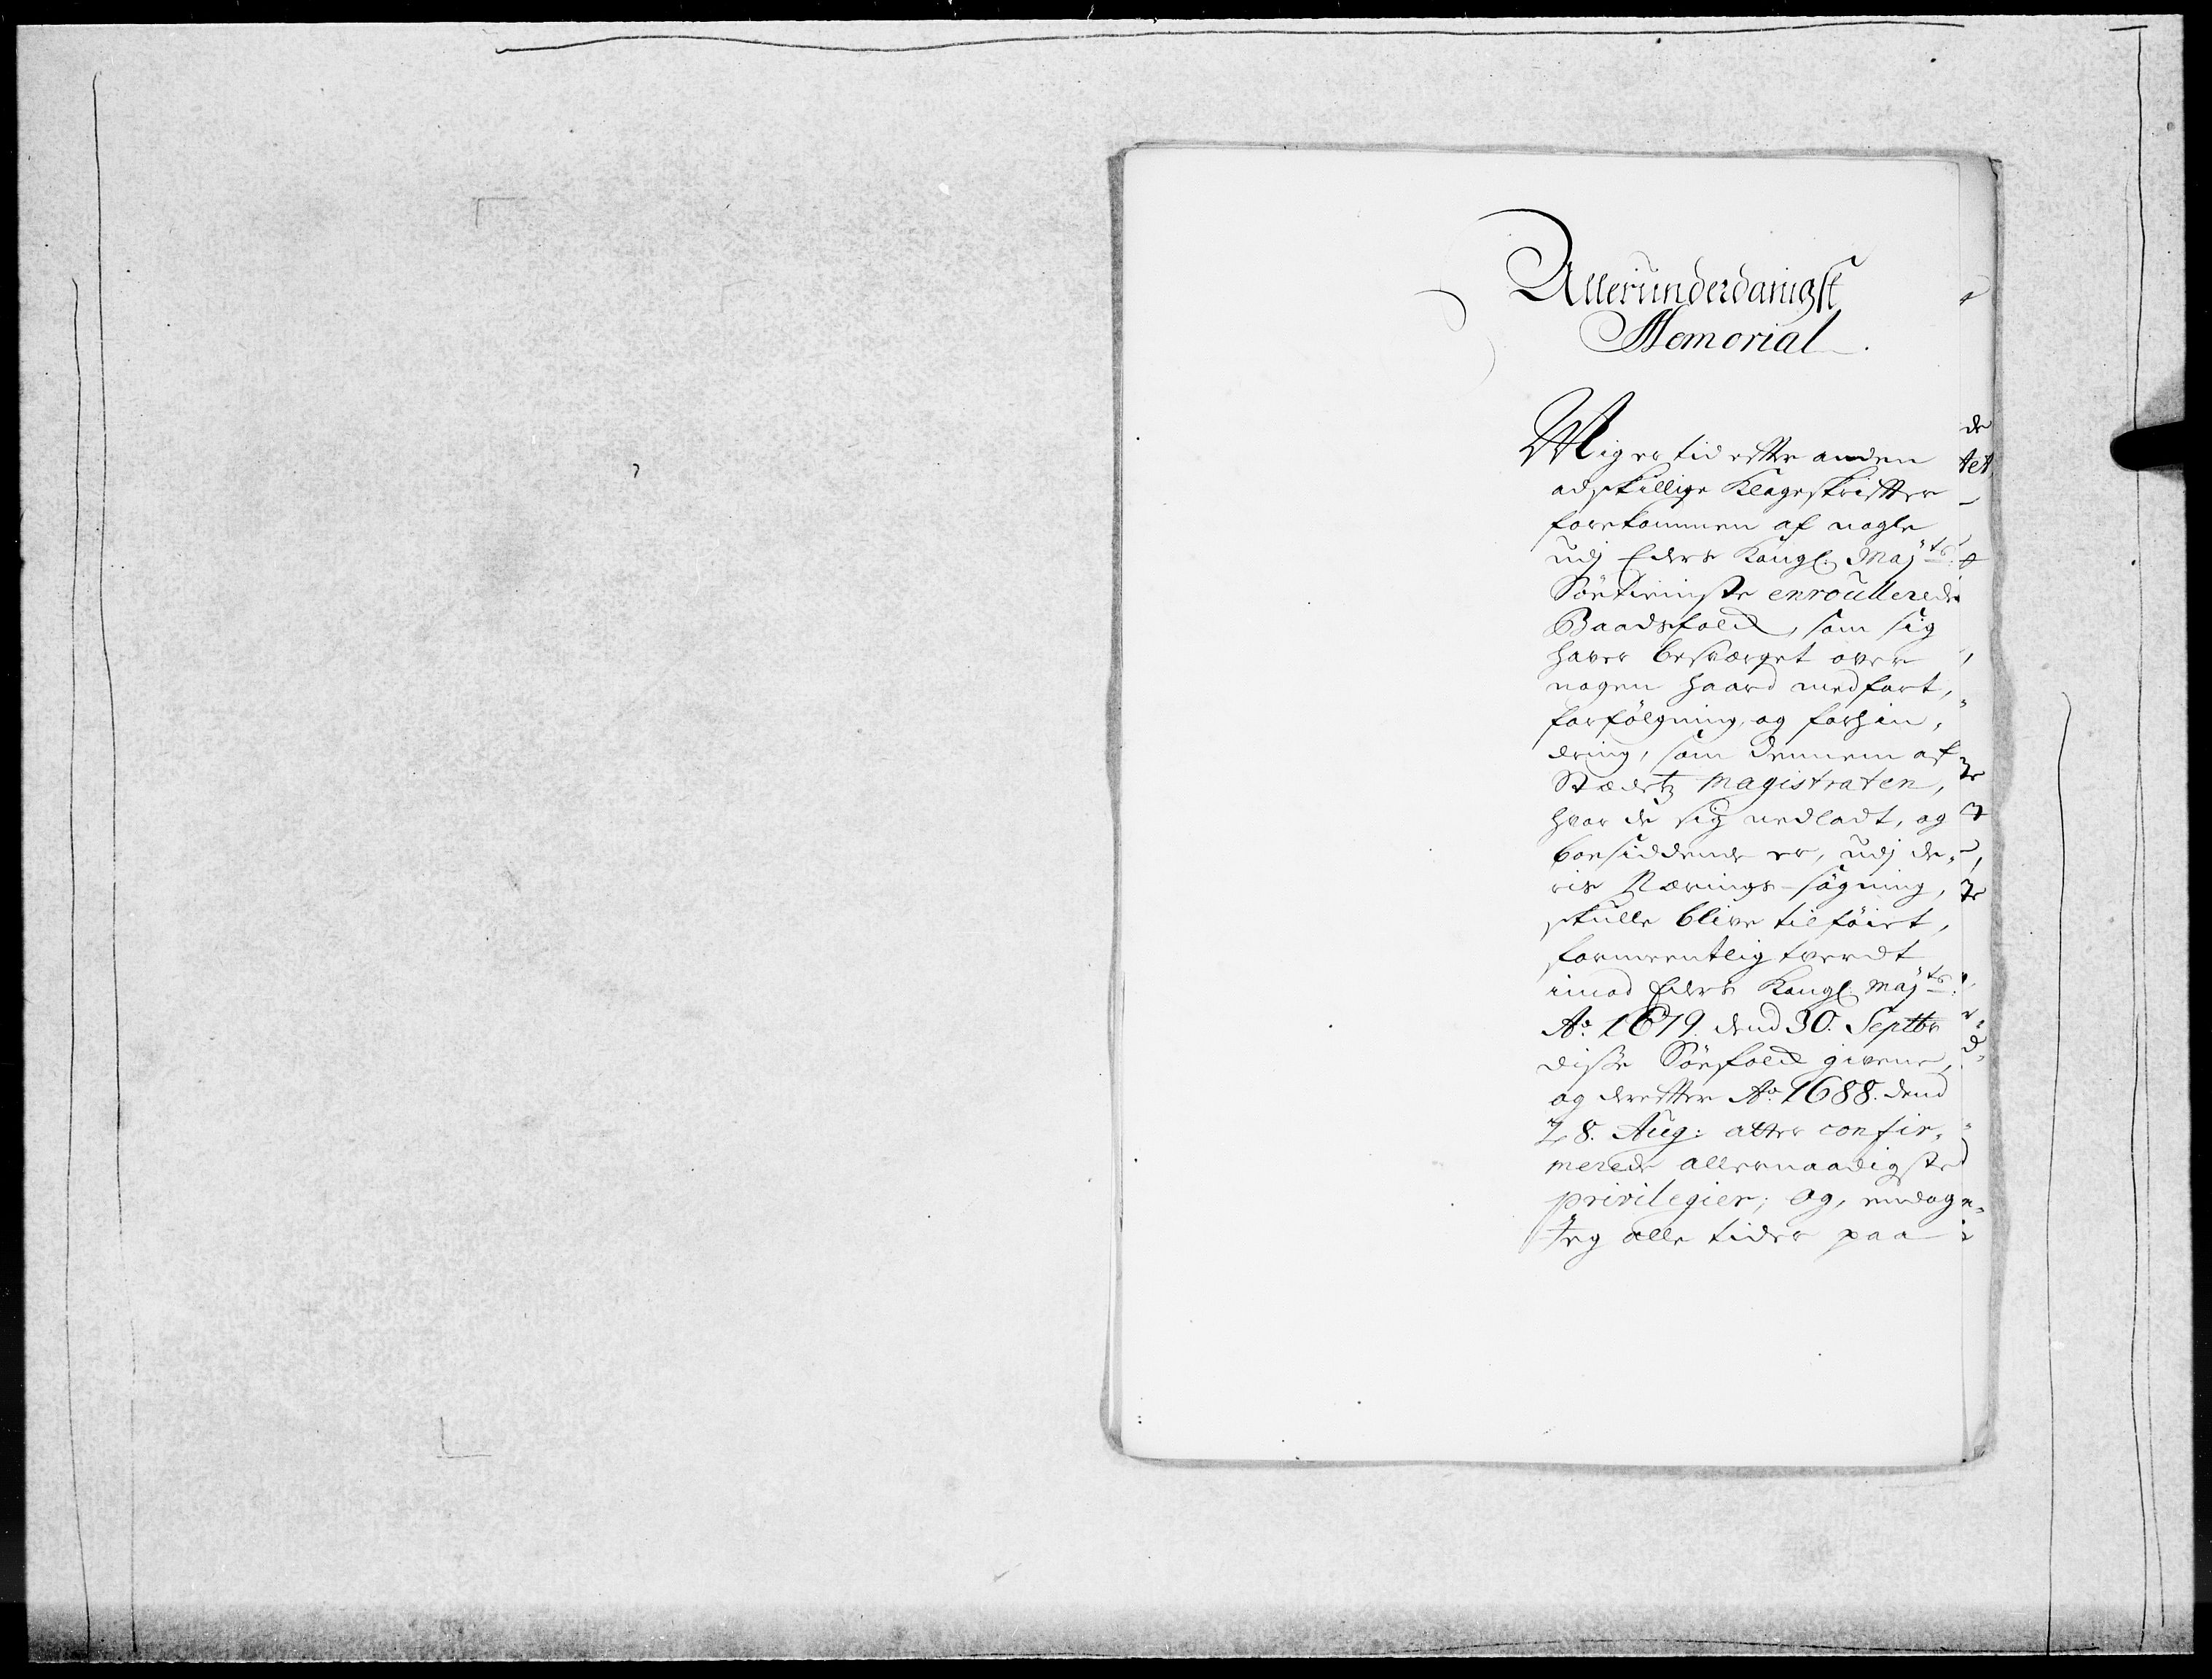 Allerunderdanigst
Memorial.
Mig er tid efter anden
adskillige Klageskrifter
forekommen af nogle
udj Eders Kongl. Maj:ts
Söetieniste enroullerede
Baadsfolck, som sig
hafver besværget over
nogen haard medfart,
forfölgning, og forhin-
dring, som dennem af
Stædetz Magistraten,
hvor de sig nedladt, og
boesiddende er, udj de-
ris Nærings-sögning,
skulle blive tilföiet,
formeentlig tvertt
imod Eders Kongl. Maj:ts
Ao. 1679. dend 30. Septbr
disse Söefolck givene,
og derefter Ao. 1688. dend
28. Aug: atter confir-
merede allernaadigste
privilegier; Og, endog
Jeg alle tider paa